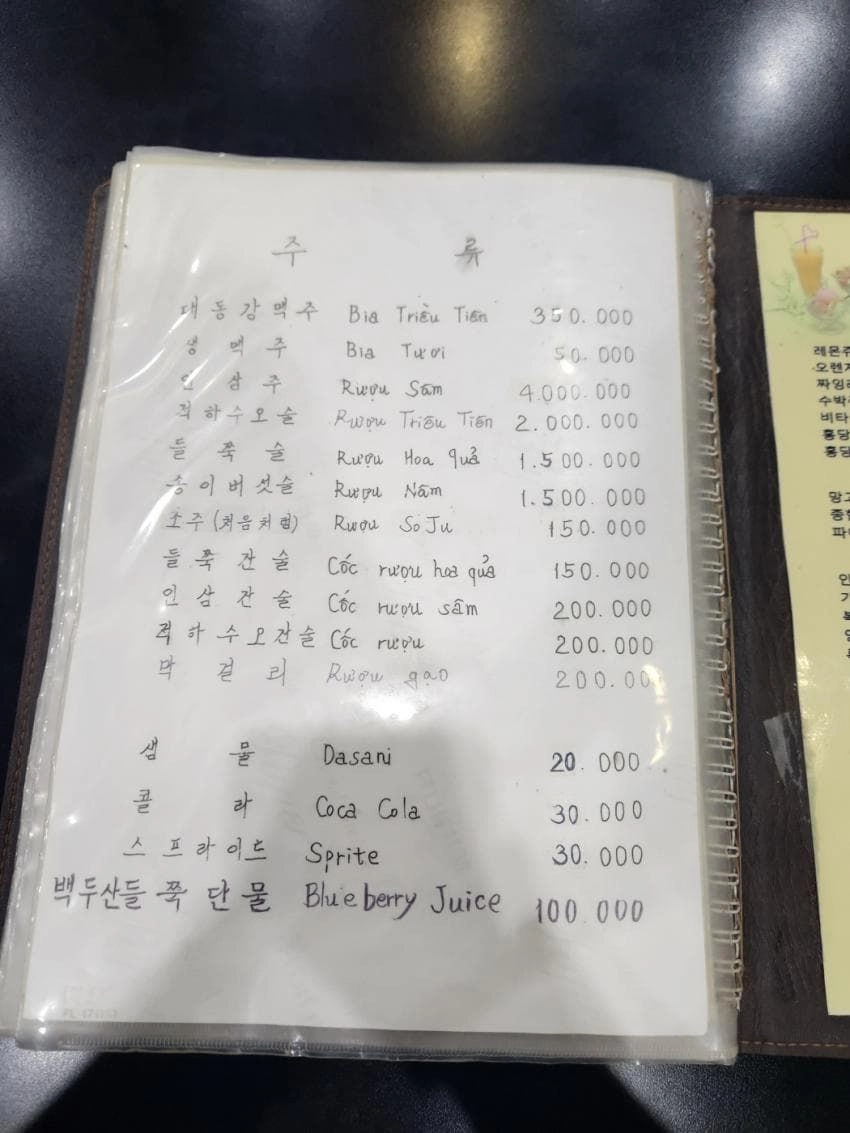 주 류
대동강맥주 Bia Triều Tiên 350.000
생맥주 Bia Tươi 50.000
인삼주 Rượu Sâm 4.000.000
적하수오술 Rượu Triều Tiên 2.000.000
들쭉술 Rượu Hoa quả 1.500.000
송이버섯술 Rượu Nấm 1.500.000
소주(처음처럼) Rượu SoJu 150.000
들쭉잔술 Cốc rượu hoa quả 150.000
인삼잔술 Cốc rượu sâm 200.000
적하수오잔술 Cốc rượu 200.000
막걸리 Rượu gạo 200.00
샘물 Dasani 20.000
콜라 Coca Cola 30.000
스프라이트 Sprite 30.000
백두산들쭉단물 Blueberry Juice 100.000
레몬쥬
오렌지
수박
비타
홍당
홍당
망고
종합